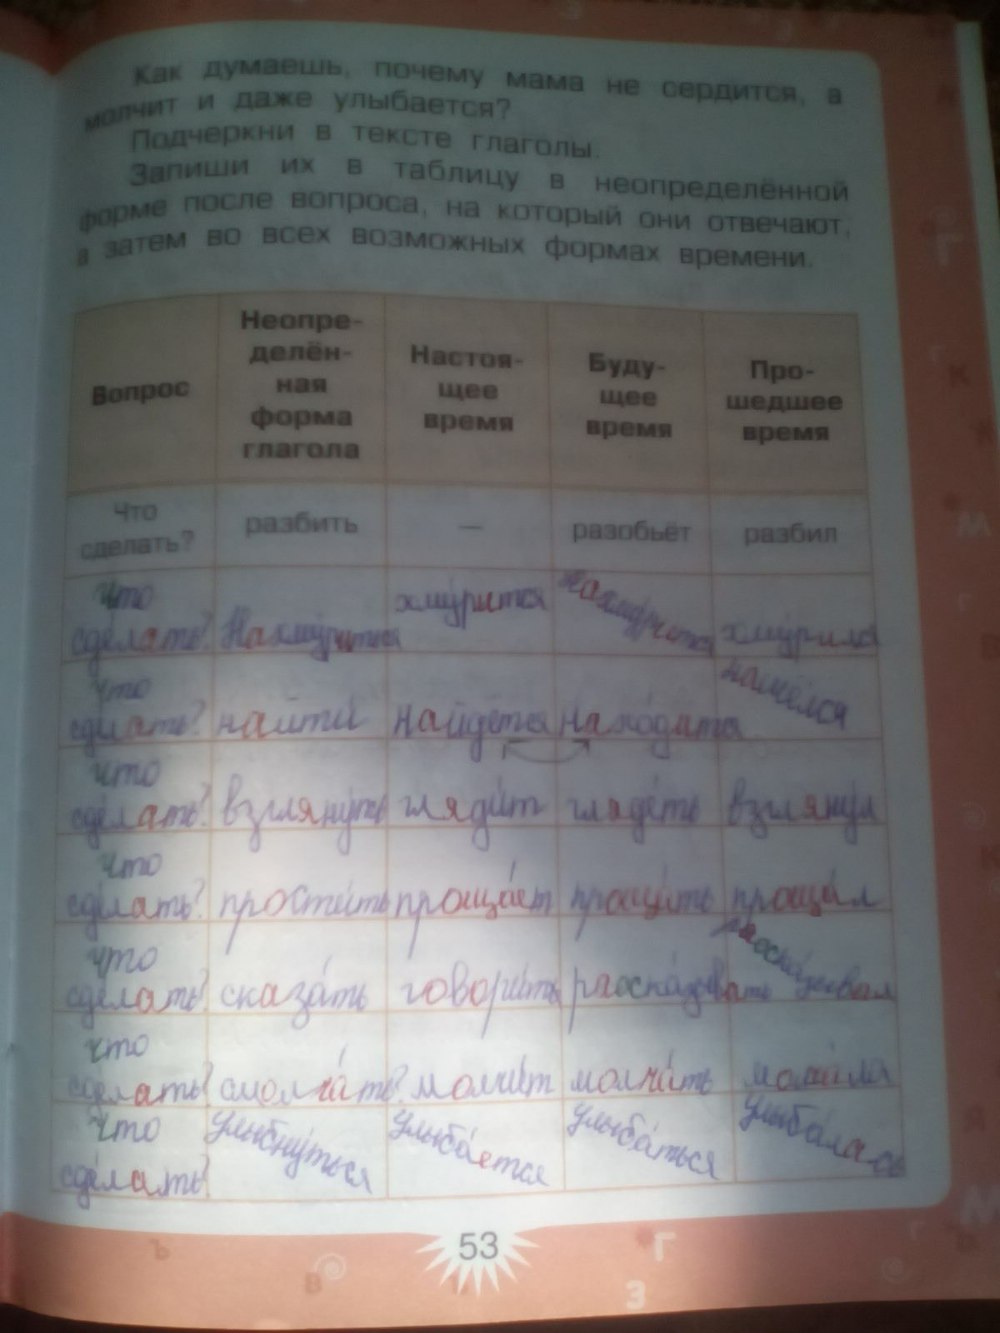 Как думаешь, почему мама не сердится, а
молчит и даже улыбается?
Подчеркни в тексте глаголы.
Запиши их в таблицу в неопределённой
форме после вопроса, на который они отвечают,
а затем во всех возможных формах времени.
Вопрос Неопре-делён-ная форма глагола Настоя-щее время Буду-щее время Про-шедшее время
Что сделать? разбить — разобьёт разбил
что сделать? Нахмуриться хмурится нахмурится хмурился
что сделать? найти найдётся находится нашёлся
что сделать? взглянуть глядит глядеть взглянул
что сделать? простить прощает прощать прощал
что сделать? сказать говорить
что сделать? смолчать? молчит молчать молчала
что сделать? улыбнуться улыбается улыбаться улыбалась
53